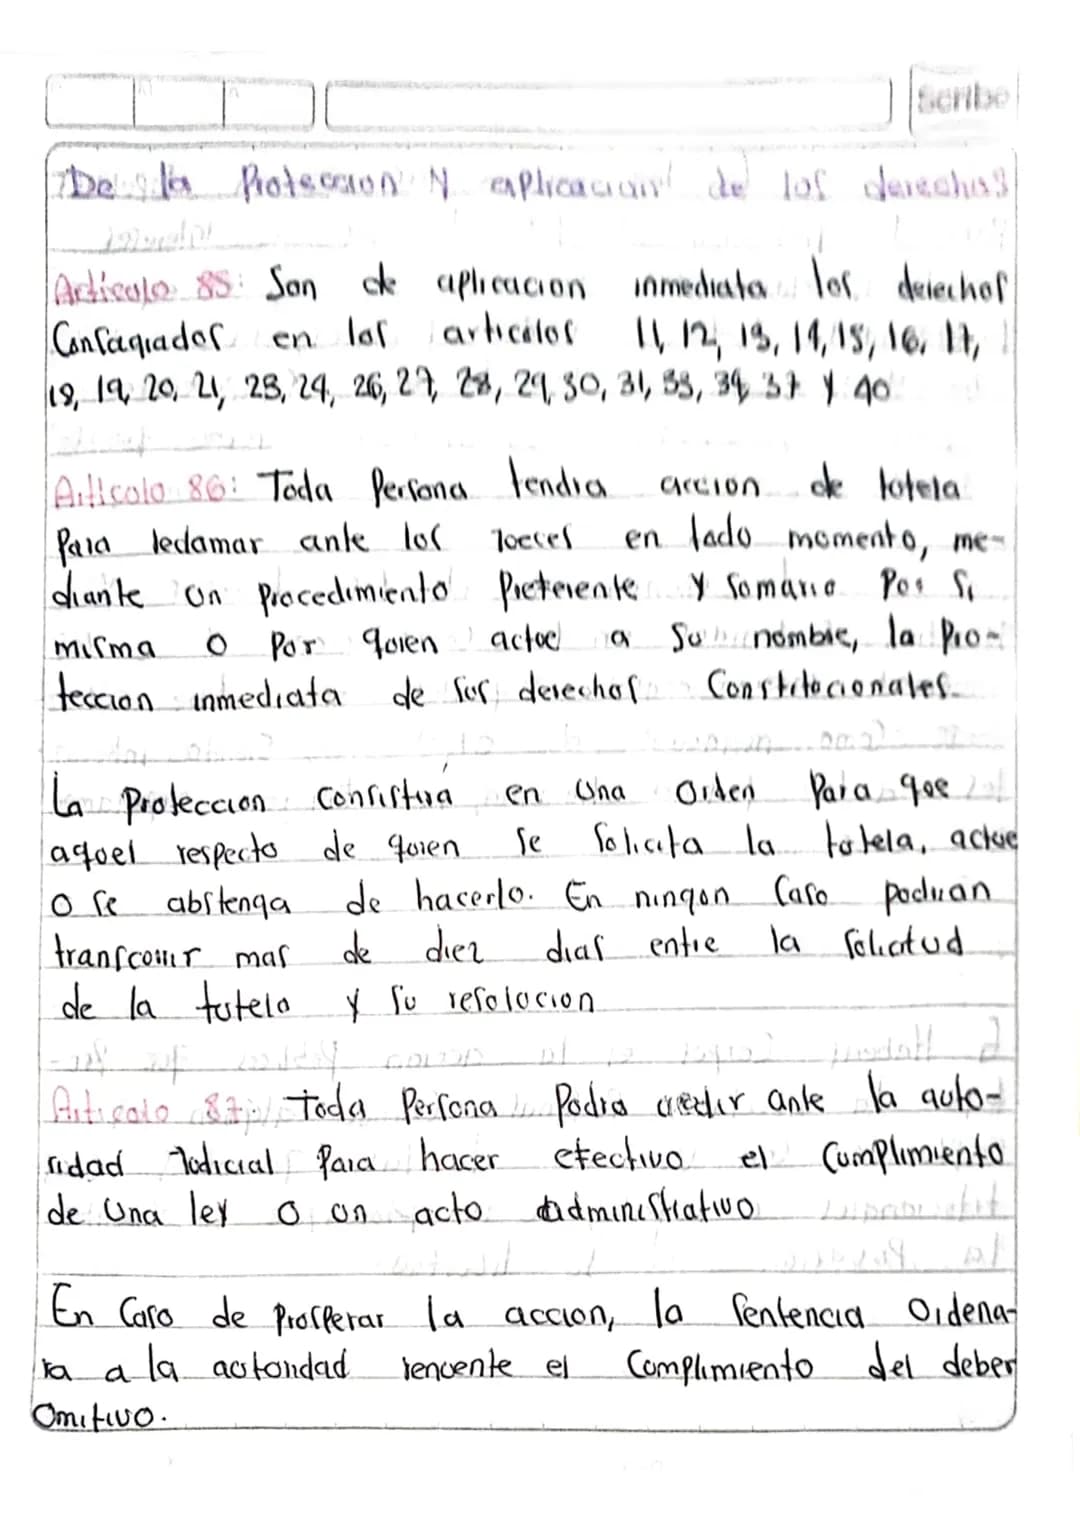 Scribe
De la Proteccion Y aplicacion de los derechos
Articulo 85: Son de aplicacion inmediata los derechos
Consagrados en los articulos 11, 12, 13, 14, 15, 16, 17,
18, 19, 20, 21, 23, 24, 26, 27, 28, 29, 30, 31, 33, 34, 37 y 40
Articulo 86: Toda Persona tendra accion de tutela
Para reclamar ante los Jueces en todo momento, me-
diante un Procedimiento Preferente y Sumario Por Si
misma o Por quien actue a Su nombre, la Pro-
teccion inmediata de sus derechos Constitucionales.
La Proteccion Consistira en una Orden Para que
aquel respecto de quien se Solicita la tutela, actue
o se abstenga de hacerlo. En ningun Caso podran
transcurrir mas de diez dias entre la Solicitud
de la tutela y su resolucion
Articulo 87: Toda Persona Podra acudir ante la auto-
ridad Judicial Para hacer efectivo el Cumplimiento
de una ley o un acto administrativo
En Caso de Prosperar la accion, la Sentencia Ordena-
ra a la autoridad renuente el Cumplimiento del deber
Omitivo.